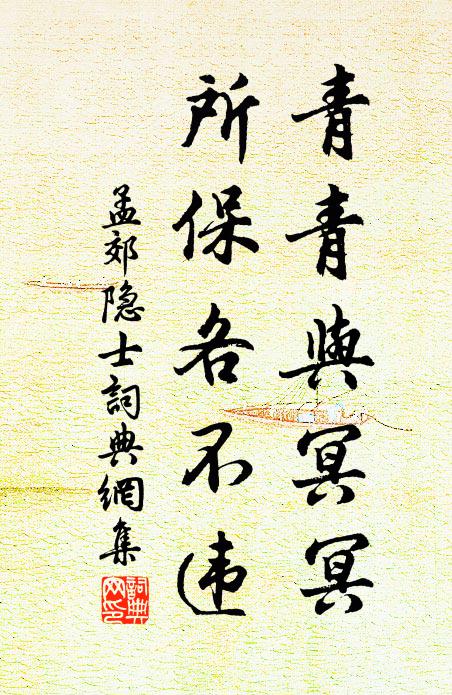 青青與冥冥
所保各不违
孟郊隐士詞典網集
詞典
网印